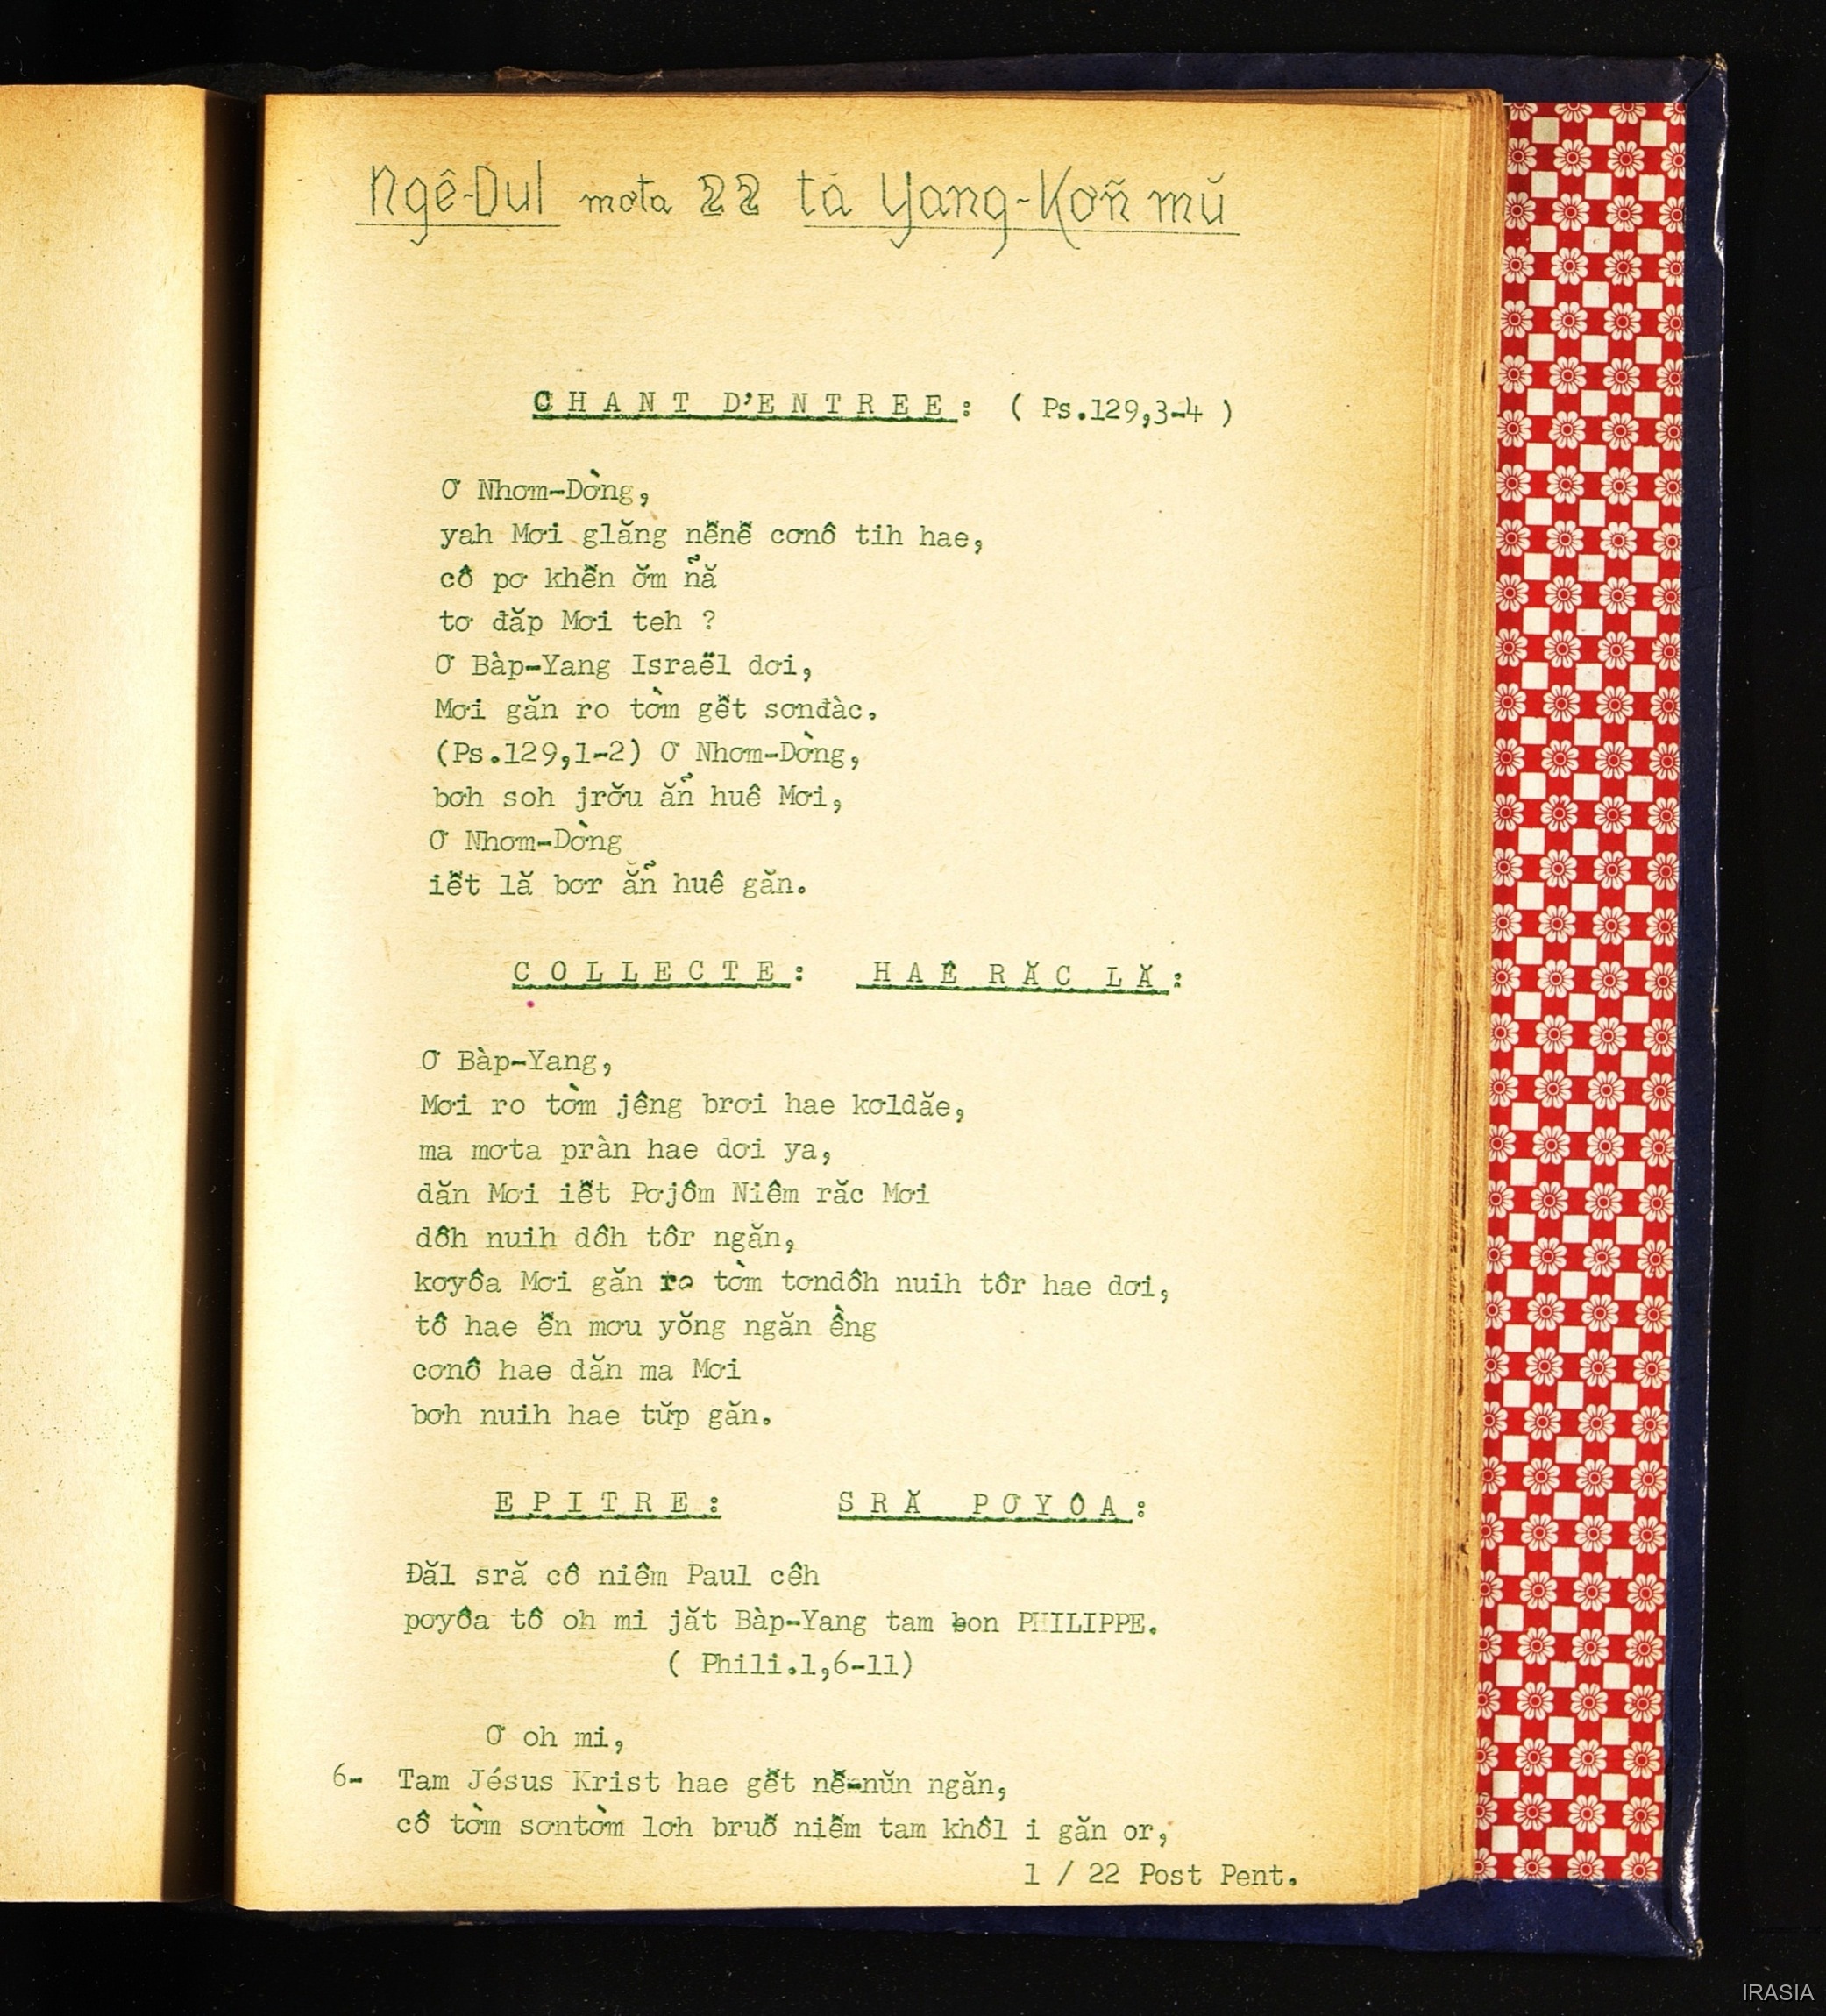 Ngê-Dul mơta 22 tá Yang-Kơñ mŭ
CHANT D'ENTREE: ( Ps.129,3-4 )
Ơ Nhơm-Dờng,
yah Mơi glăng nê̆nê̆ cơnô tih hae,
cô pơ khê̆n ơ̆m n̉ă
tơ đăp Mơi teh ?
Ơ Bàp-Yang Israël dơi,
Mơi găn ro tờm gê̆t sơnđàc.
(Ps.129,1-2) Ơ Nhơm-Dờng,
bơh soh jrơ̆u ăn̉ huê Mơi,
Ơ Nhơm-Dờng
iê̆t lă bơr ăn̉ huê găn.
COLLECTE: HAÊ RĂC LĂ:
Ơ Bàp-Yang,
Mơi ro tờm jêng brơi hae kơldăe,
ma mơta pràn hae dơi ya,
dăn Mơi iê̆t Pơjôm Niêm răc Mơi
dôh nuih dôh tôr ngăn,
kơyôa Mơi găn ro tờm tơndôh nuih tôr hae dơi,
tô hae ê̆n mơu yŏng ngăn ềng
cơnô hae dăn ma Mơi
bơh nuih hae tŭp găn.
EPITRE: SRĂ PƠYÔA:
Đăl sră cô niêm Paul cêh
pơyôa tô oh mi jăt Bàp-Yang tam bon PHILIPPE.
( Phili.1,6-11)
Ơ oh mi,
6- Tam Jésus Krist hae gê̆t nê̆-nŭn ngăn,
cô tờm sơntờm lơh bruô̆ niê̆m tam khôl i găn or,
1 / 22 Post Pent.
IRASIA